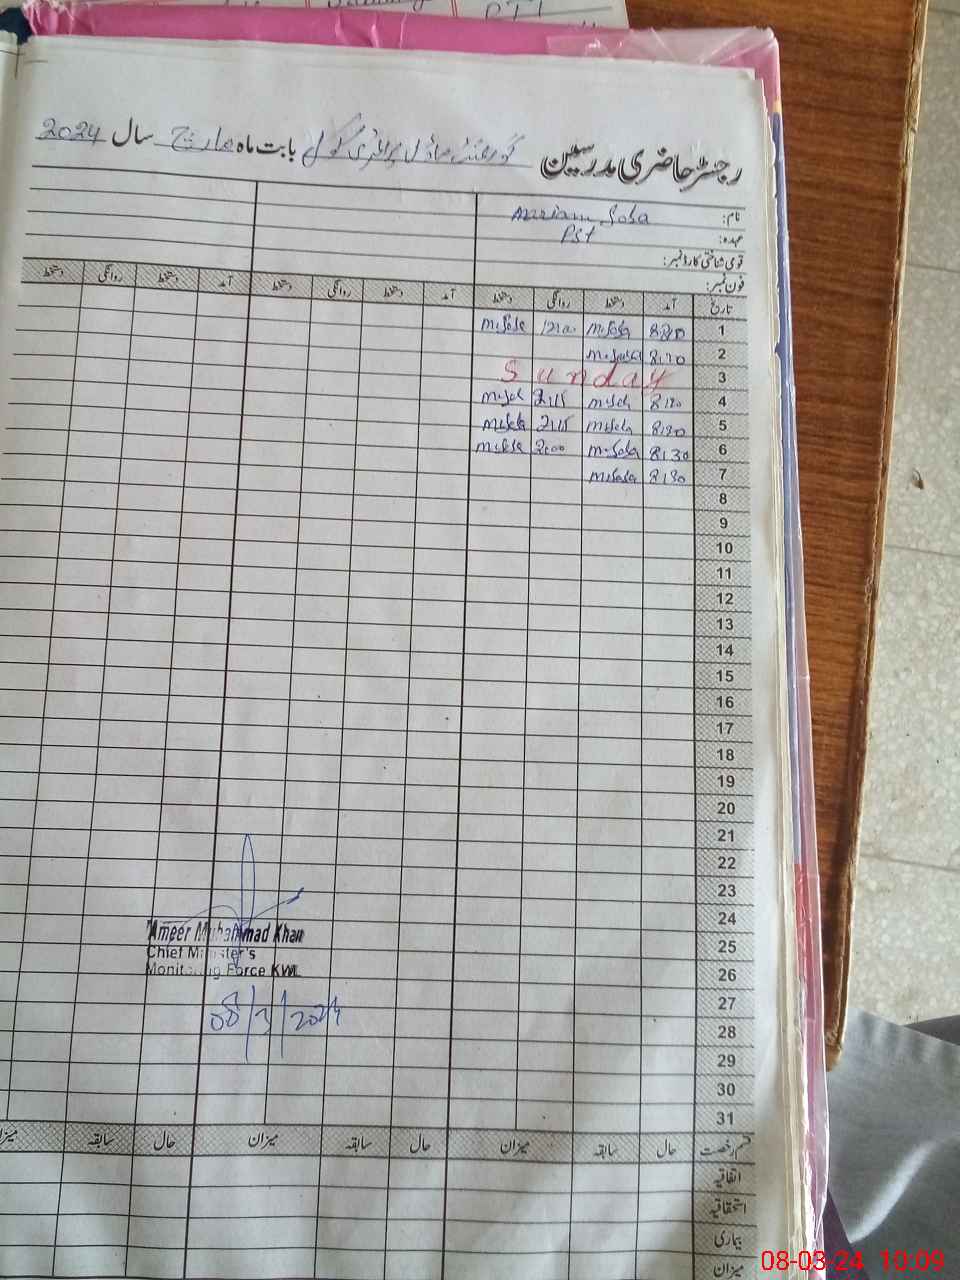 رجسٹر حاضری مدرسین گورنمنٹ ماڈل پرائمری سکول بابت ماہ مارچ سال 2024
نام: Mariam Soba
عہدہ: PST
قومی شناختی کارڈ نمبر:
فون نمبر:
تاریخ آمد دستخط روانگی دستخط آمد دستخط روانگی دستخط آمد دستخط روانگی دستخط
1 M.Soba 12:00 M.Soba
2 M.Soba
3 Sunday
4 M.Sob 2:15 M.Sob
5 M.Soba 2:15 M.Soba
6 8:30 M.Soba 2:00 M.Soba
7 8:30 M.Soba
8
9
10
11
12
13
14
15
16
17
18
19
20
21
22
23
24
25
26
27
28
29
30
31
Ameer Muhammad Khan
Chief Minister's
Monitoring Force KWL
08/3/2024
قسم رخصت حال سابقہ میزان حال سابقہ میزان حال سابقہ میزان
اتفاقیہ
استحقاقیہ
بیماری
میزان
08-03-24 10:09